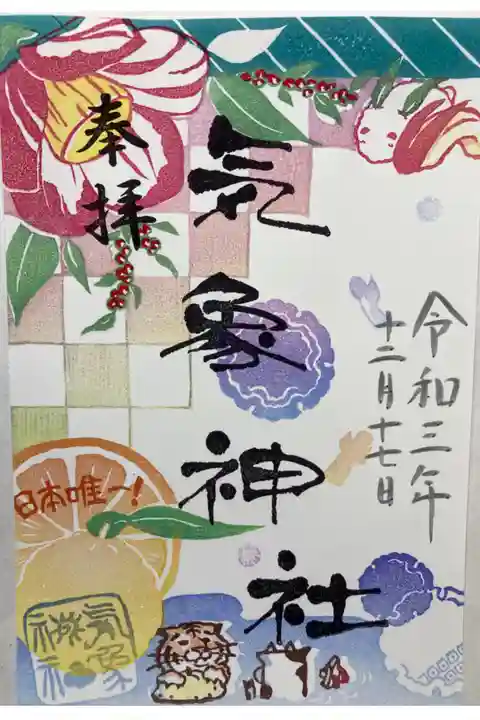 奉拝
気象神社
令和三年
十二月十七日
日本唯一!
気象
神社